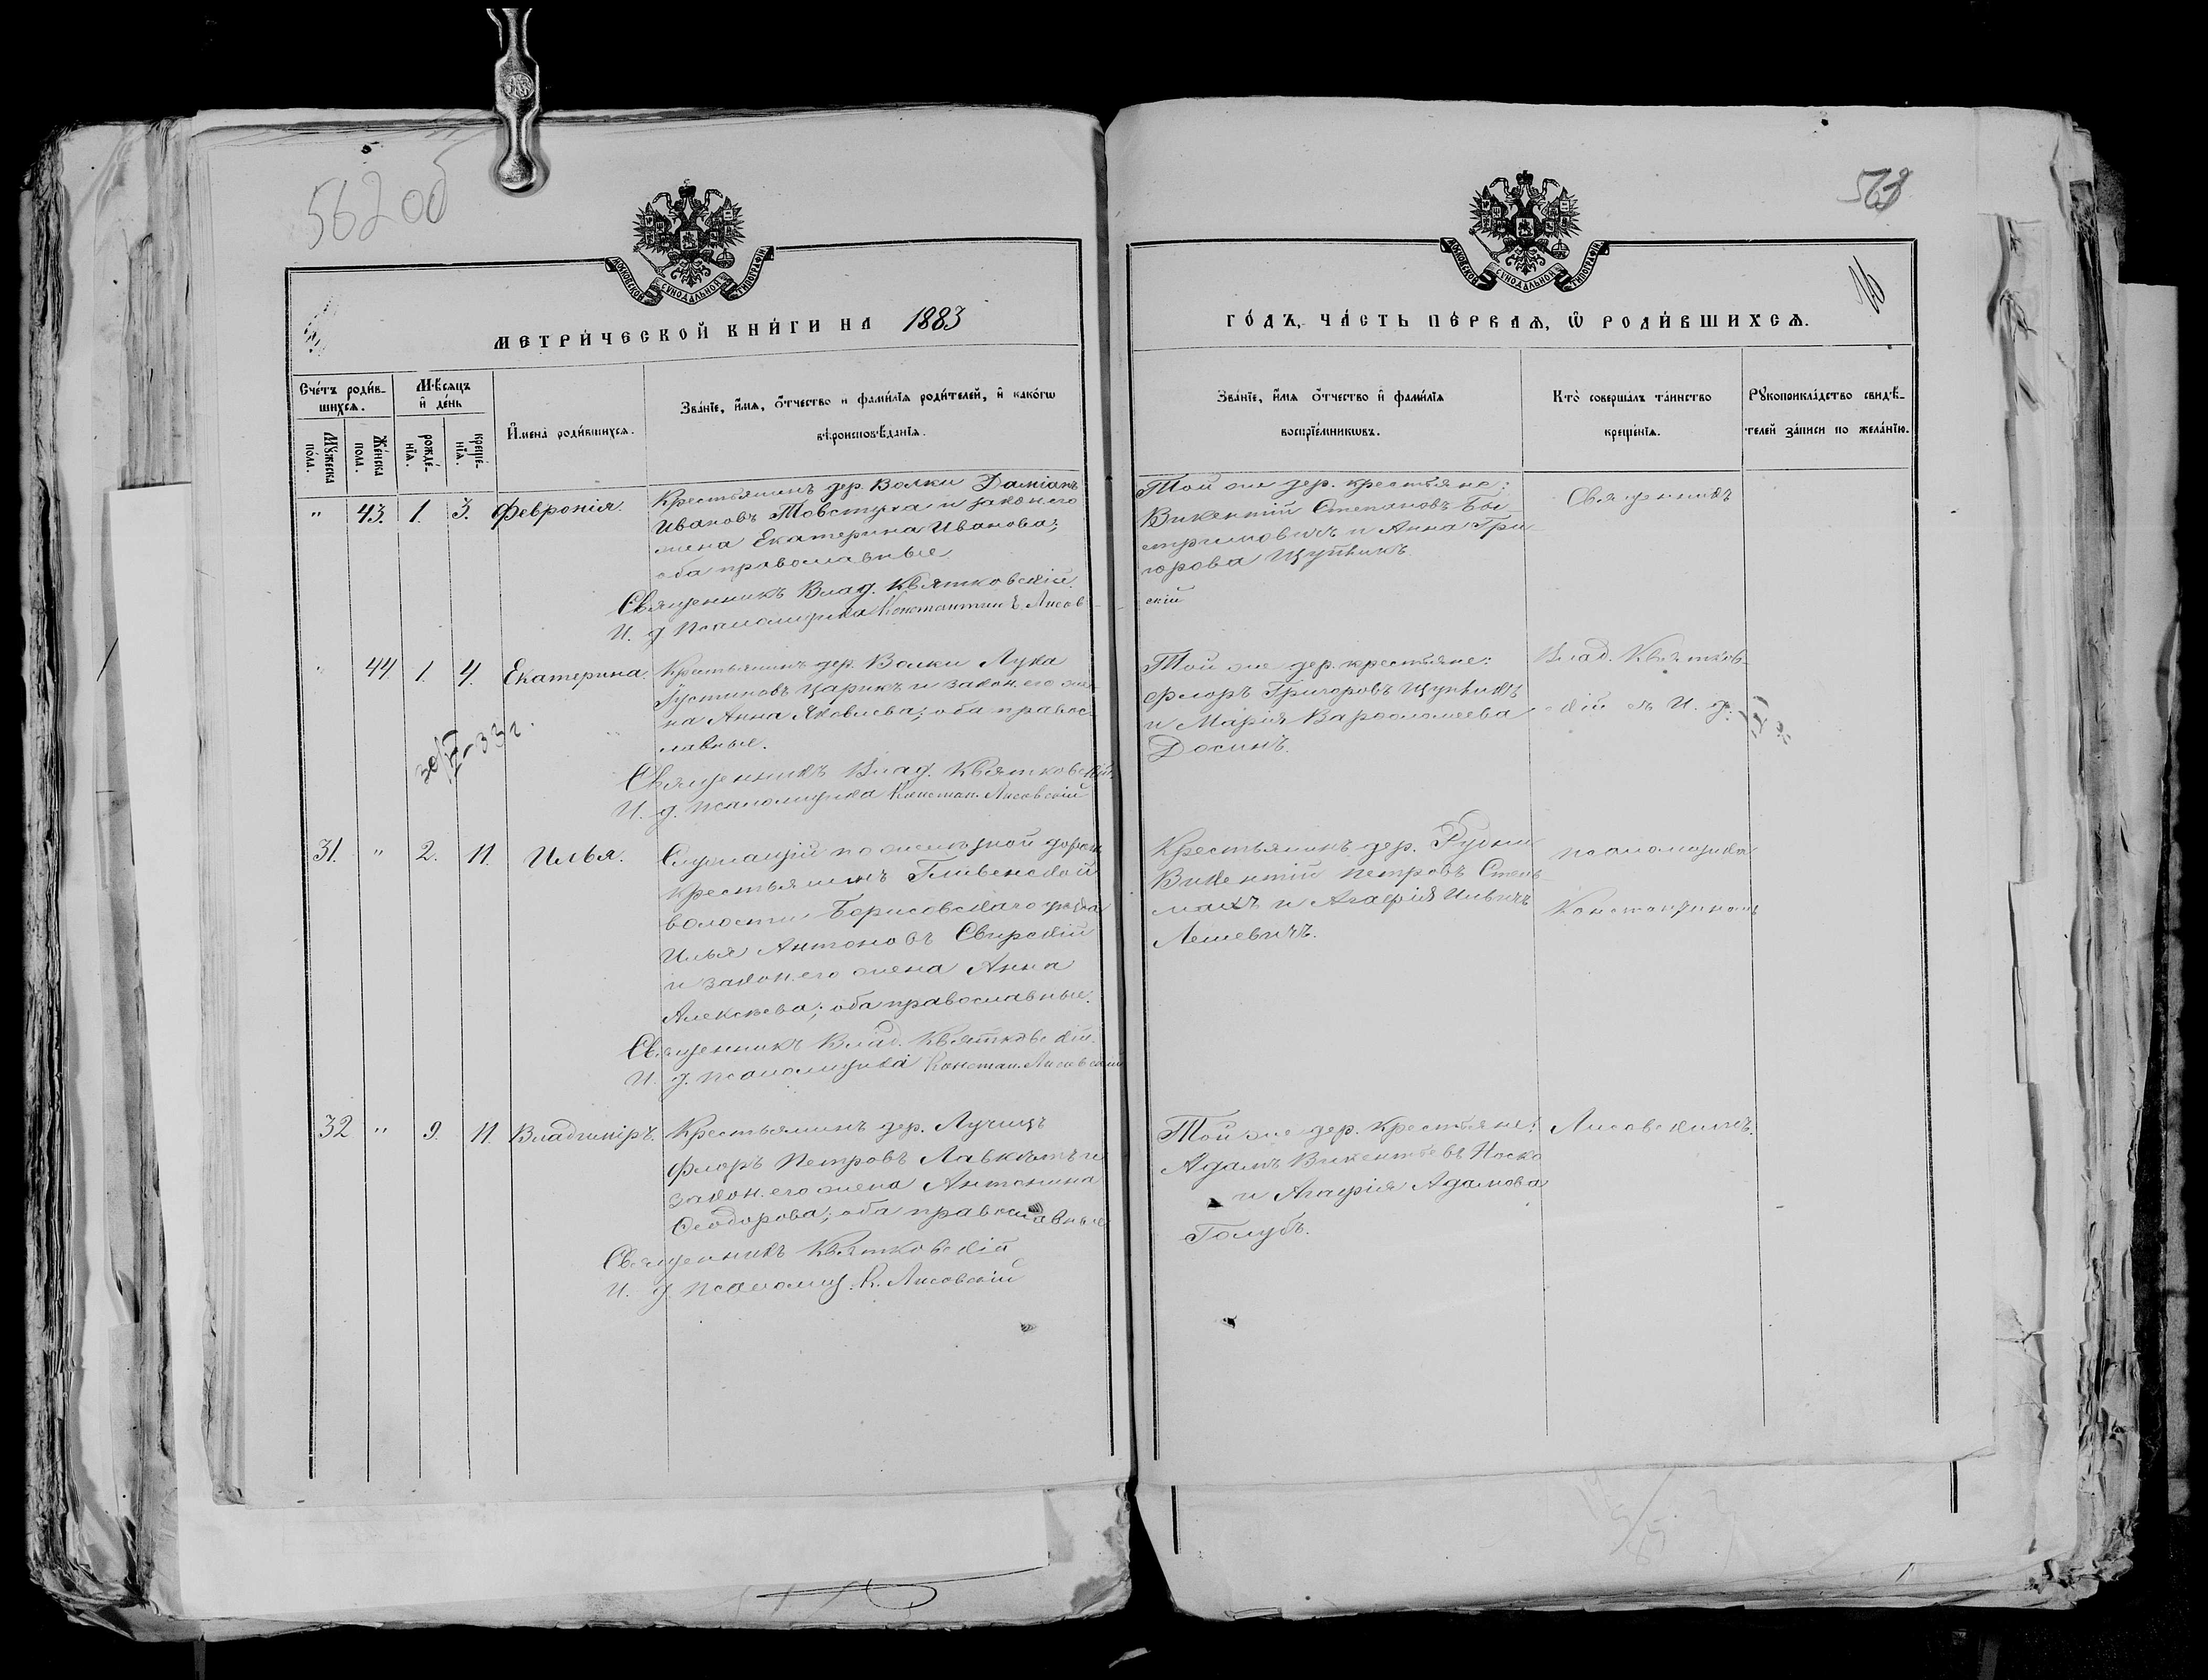 562об
МОСКОВСКОЙ СѴНОДАЛЬНОЙ ТИПОГРАФІИ
МЕТРИ́ЧЕСКОЙ КНИ́ГИ НА 1883
Сче́тъ роди́в-
шихсѧ.
Мѣ́сѧцъ
и҆ де́нь
Мꙋ́жеска
по́ла.
Же́нска
пола.
рожде́-
нїѧ.
креще́-
нїѧ.
И҆мена̀ роди́вшихсѧ.
Зва́нїе, и҆́мѧ, ѻ҆́тчество и фами́лїѧ роди́телей, и҆ како́гѡ
вѣроисповѣ́данїѧ.
" 43. 1. 3. Февронія.
Крестьянинъ дер. Волки Даміанъ
Ивановъ Товстуха и закон. его
жена Екатерина Иванова;
оба православные
Священникъ Влад. Квятковскій.
И. д. Псаломщика Константинъ Лисов-
" 44 1. 4. Екатерина.
Крестьянинъ дер. Волки Лука
Іустиновъ Царикъ и закон. его же-
на Анна Яковлева; оба правос-
лавные.
Священникъ Влад. Квятковскій.
И. д. псаломщика Констан. Лисовскій
31. " 2. 11. Илья.
Служащій по желѣзной дорогѣ
крестьянинъ Гливенской
волости Борисовскаго уѣзда
Илья Антоновъ Свирскій
и закон. его жена Анна
Алексѣева; оба православные.
Священникъ Влад. Квятковскій.
И. д. псаломщика Констан. Лисовскій
32 " 9. 11. Владиміръ.
Крестьянинъ дер. Лучицъ
Флоръ Петровъ и
закон. его жена Антонина
Ѳеодорова; оба православные
Священникъ Квятковскій
И. д. псаломщ. К. Лисовскій
563
16
МОСКОВСКОЙ СѴНОДАЛЬНОЙ ТИПОГРАФІИ
ГО́ДЪ, ЧА́СТЬ ПЕ́РВАѦ, Ѡ҆ РОДИ́ВШИХСѦ.
Зва́нїе, и҆́мѧ ѻ҆́тчество и҆ фами́лїѧ
воспрїе́мникѡвъ.
Кто̀ соверша́лъ та́инство
креще́нїѧ.
Рꙋкоприкла́дство свидѣ́-
телей за́писи по жела́нїю.
Той же дер. крестьяне:
Викентій Степановъ
и Анна Гри-
горова Щупникъ.
скій
Священникъ
Той же дер. крестьяне:
Флоръ Григоровъ Щупникъ
и Марія Варѳоломеева
Досинъ.
Влад. Квятков-
скій съ И. д.
Крестьянинъ дер. Рудни
Викентій Петровъ
и Агафія
Лешевичъ.
псаломщика
Константиномъ
Той же дер. крестьяне:
Адамъ Викентьевъ Носко
и Агафія Адамова
Голубъ.
Лисовскимъ.